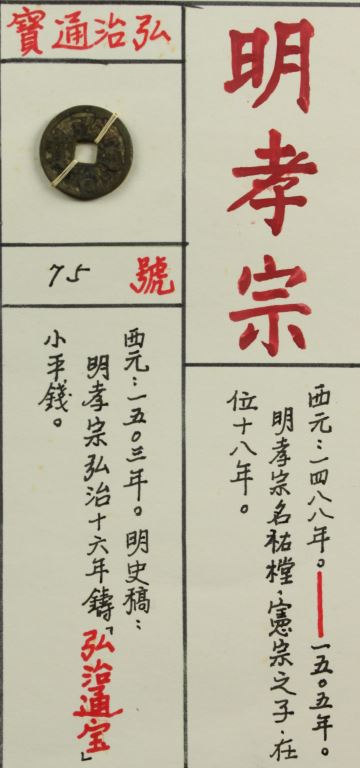 明孝宗
西元：一四八八年。——一五〇五年。
明孝宗名祐樘，憲宗之子，在
位十八年。
弘治通寶
75 號
西元：一五〇三年。明史稿：
明孝宗弘治十六年鑄「弘治通宝」
小平錢。